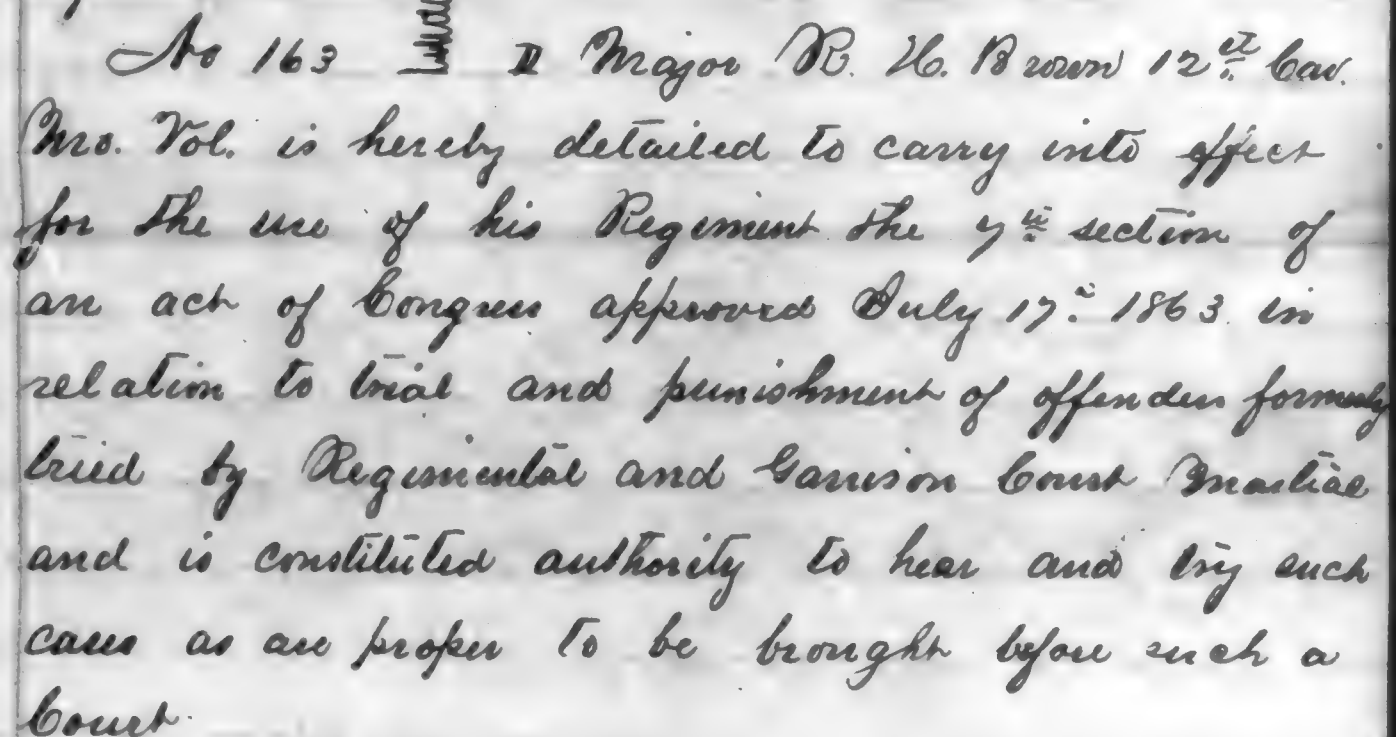 No 163 II Major R. H. Brown 12th Cav.
Mo. Vol. is hereby detailed to carry into effect
for the use of his Regiment the 7th section of
an act of Congress approved July 17th 1863 in
relation to trial and punishment of offenders formerly
tried by Regimental and Garrison Court Martial
and is constituted authority to hear and try such
cases as are proper to be brought before such a
Court.